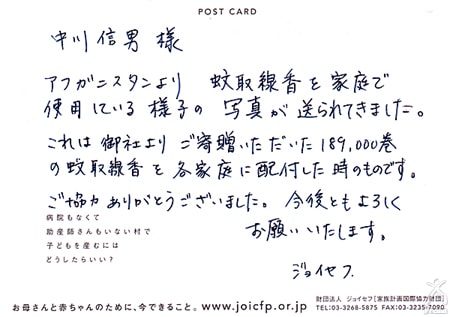 POST CARD
中川信男 様
アフガニスタンより 蚊取線香を家庭で
使用している様子の 写真が送られてきました。
これは御社より ご寄贈いただいた189,000巻
の蚊取線香を各家庭に配付した時のものです。
ご協力ありがとうございました。今後ともよろしく
お願いいたします。
ジョイセフ
病院もなくて
助産師さんもいない村で
子どもを産むには
どうしたらいい?
お母さんと赤ちゃんのために、今できること。 www.joicfp.or.jp
財団法人 ジョイセフ[家族計画国際協力財団]
TEL:03-3268-5875 FAX:03-3235-7090